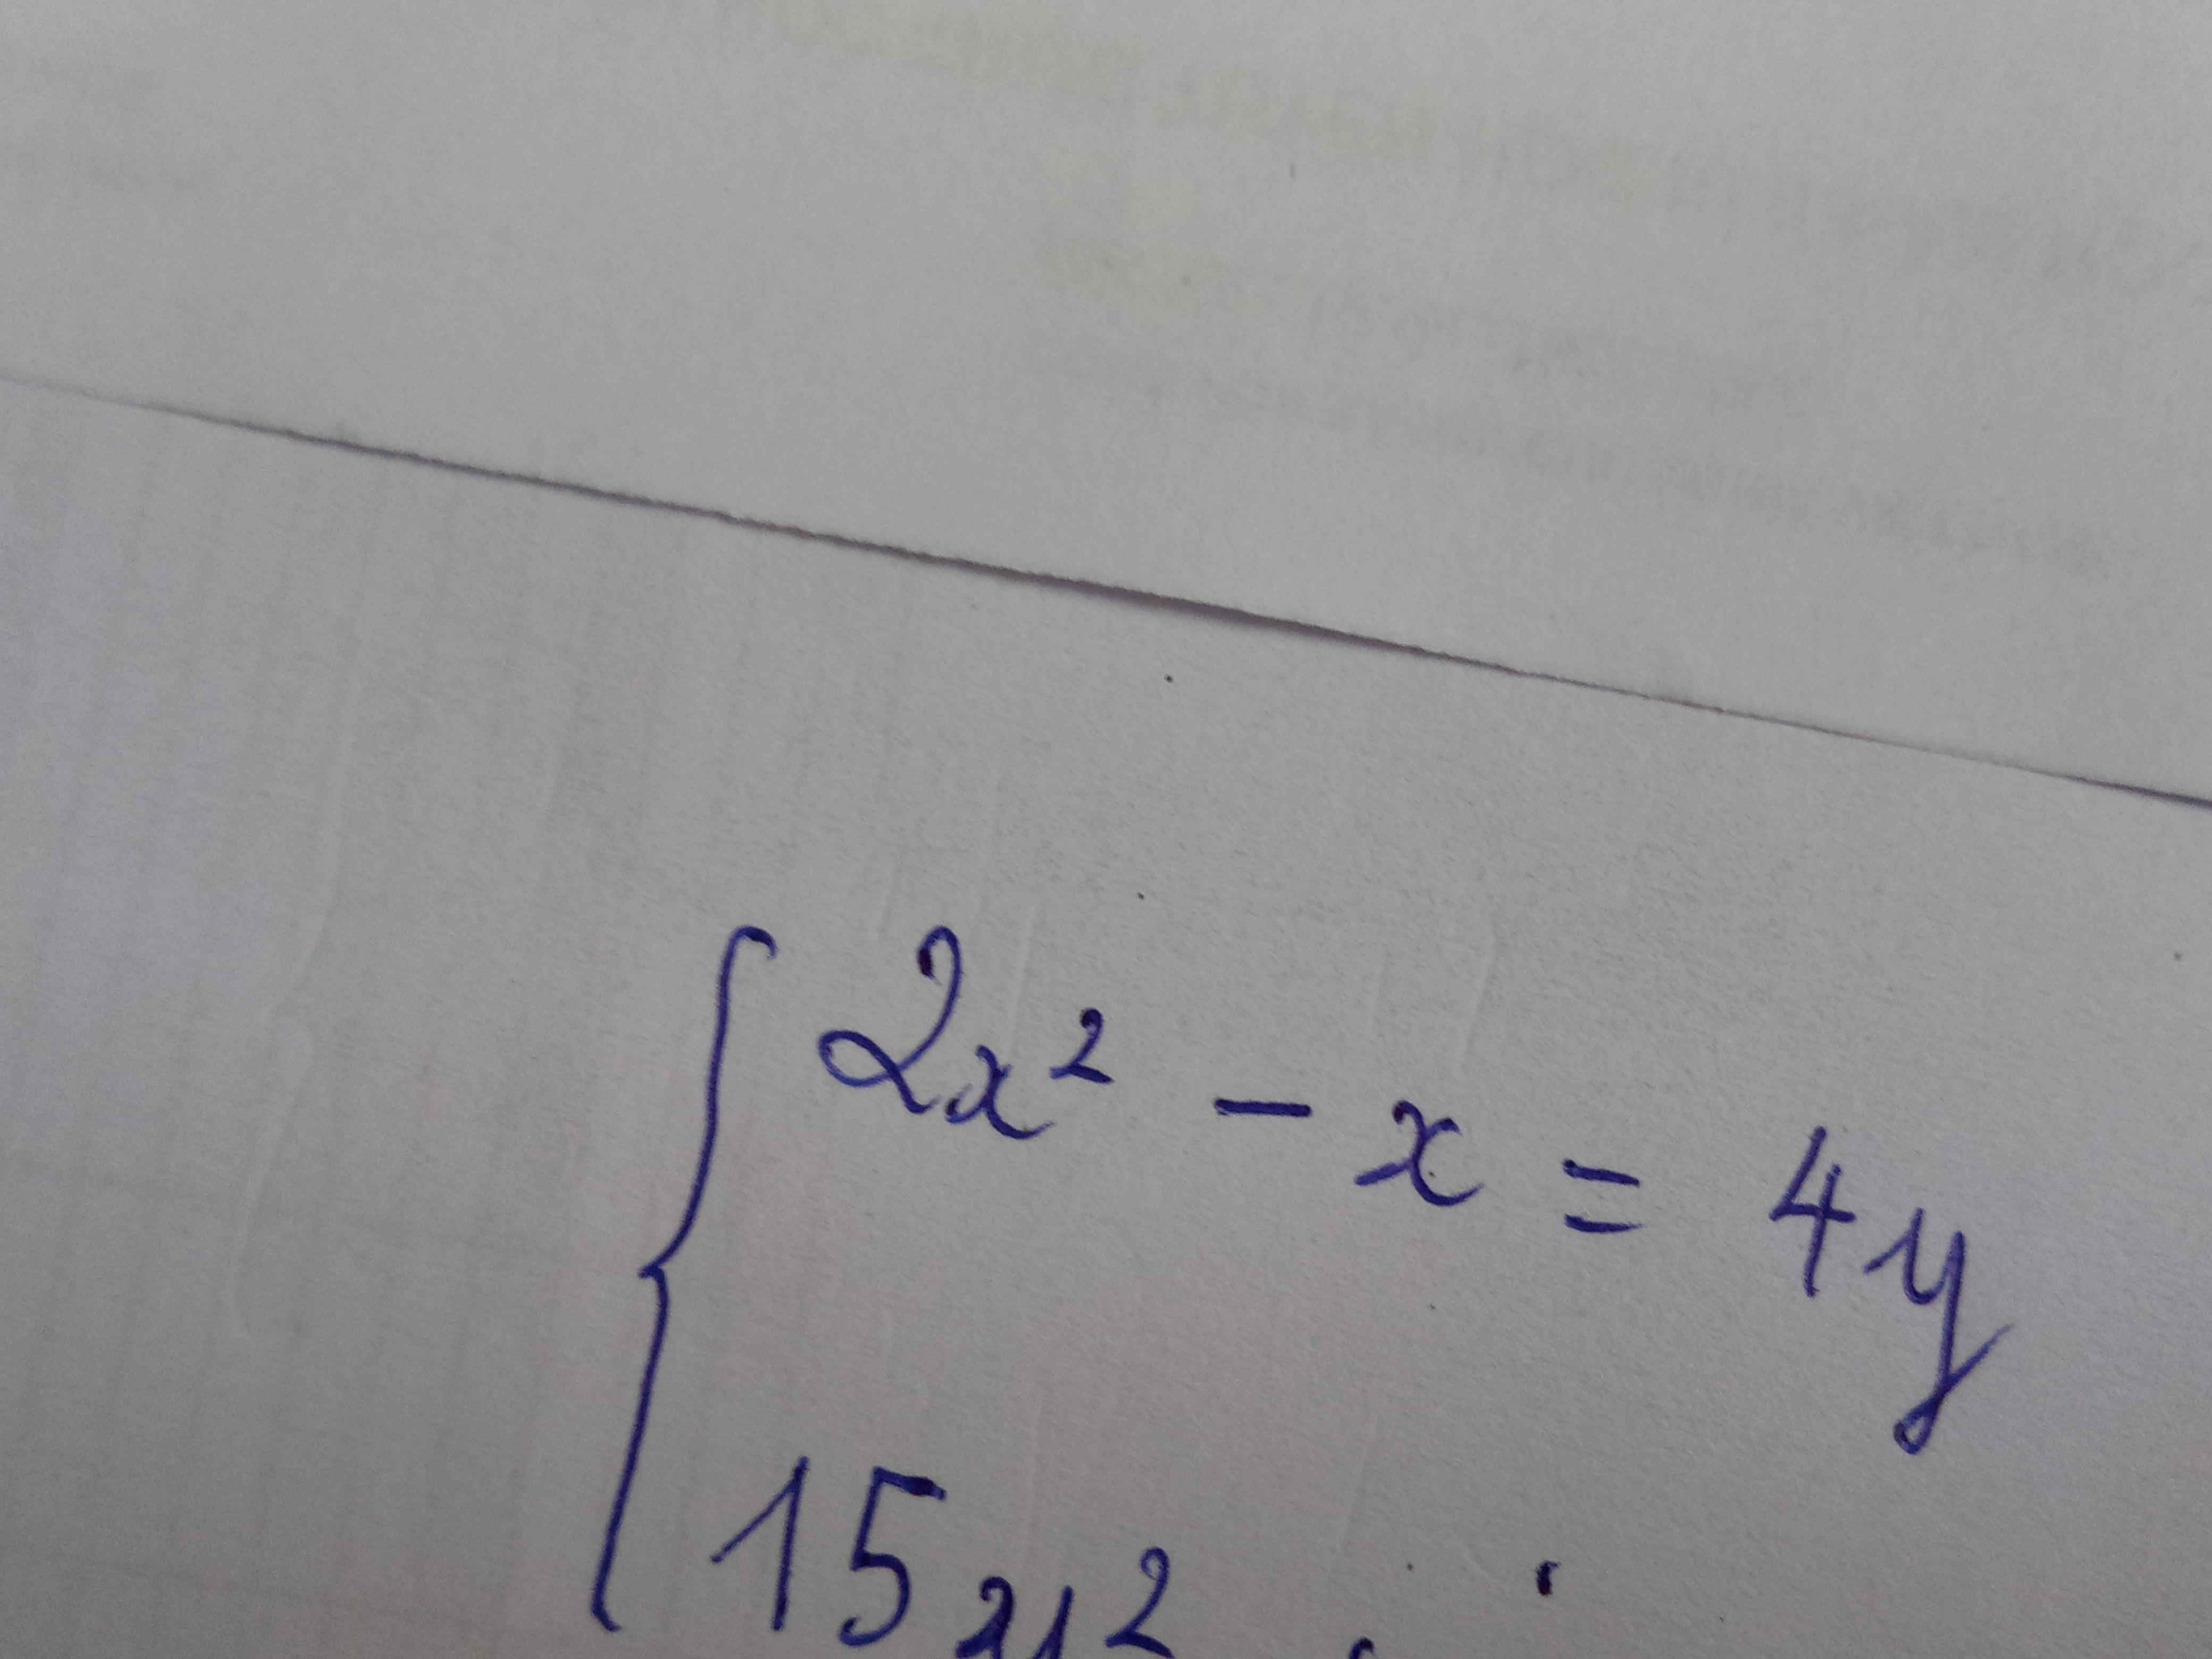 2x² - x = 4y
15y²